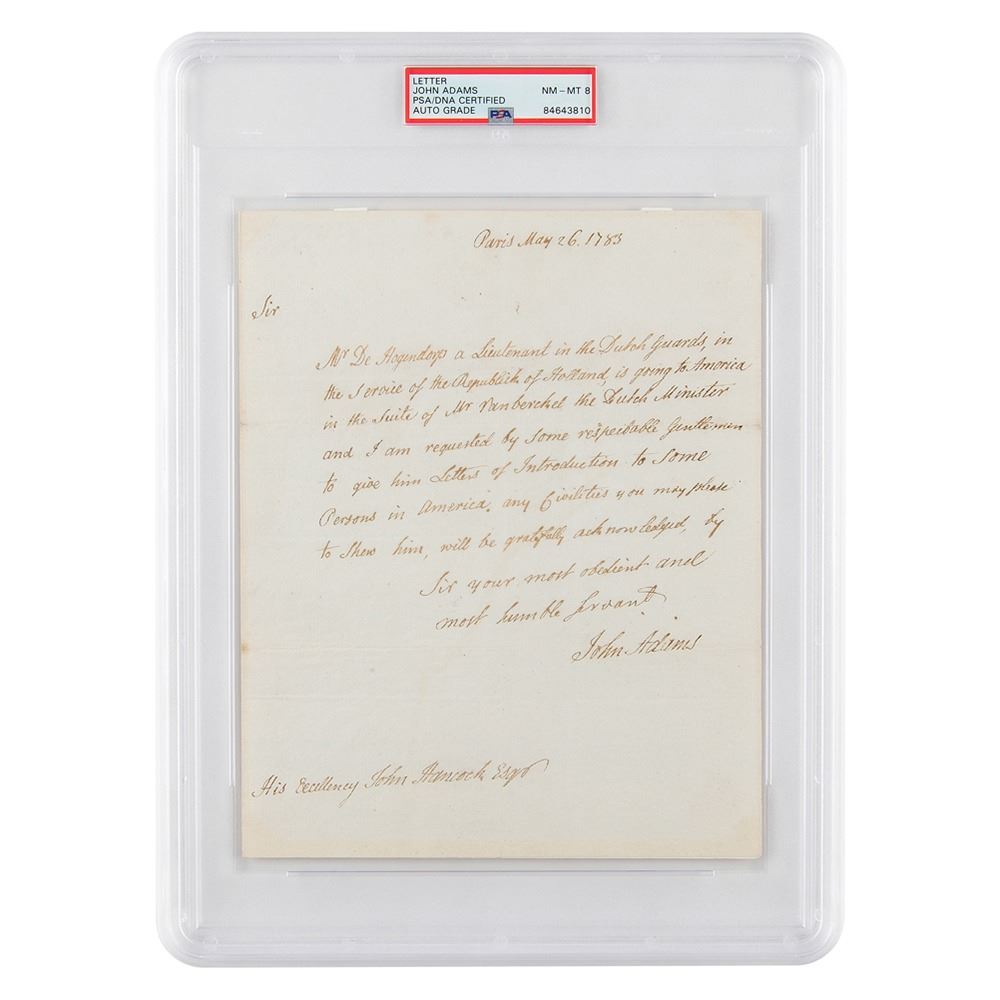 LETTER
JOHN ADAMS NM-MT 8
PSA/DNA CERTIFIED
AUTO GRADE PSA 84643810
Paris May 26. 1783
Sir
Mr De Hogendorp a Lieutenant in the Dutch Guards, in
the Service of the Republick of Holland, is going to America
in the Suite of Mr Vanberckel the Dutch Minister
and I am requested by Some respectable Gentlemen
to give him Letters of Introduction to Some
Persons in America. any Civilities you may please
to Shew him, will be gratefully acknowledged, by
Sir your most obedient and
most humble Servant
John Adams
His Excellency John Hancock Esqr